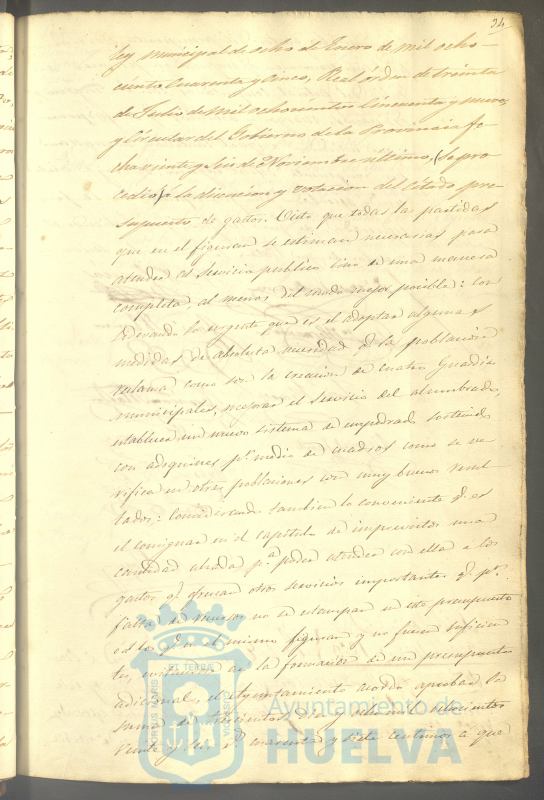 34
ley municipal de ocho de Enero de mil ocho-
ciento Cuarenta y cinco, Real órden de treinta
de Julio de mil ochocientos Cincuenta y nueve,
y Circular del Gobierno de la Provincia fe-
cha veinte y seis de Noviembre último, (se pro-
cedio) a la discusion y votacion del citado pre-
supuesto de gastos. Visto que todas las partidas
que en el figuran se estiman necesarias para
atender al servicio publico sino de una manera
completa, al menos del modo mejor posible: Con
siderando lo urgente que es el adoptar algunas
medidas de absoluta necesidad q.e la poblacion
reclama como son la creacion de cuatro Guardias
municipales, mejorar el servicio del alumbrado,
establecer un nuevo sistema de empedrado
con adoquines p.r medio de cuadros como se ve-
rifica en otras poblaciones con muy buenos resul
tados: Considerando tambien lo conveniente q.e es
el consignar en el capitulo de imprevistos una
cantidad alzada p.a poder atender con ella a los
gastos q.e ofrezcan otros servicios importantes q.e p.r
falta de recursos no se estampan en este presupuesto
o a los q.e en el mismo figuran y no fueren suficien
tes, en la formacion de un presupuesto
adicional, el Ayuntamiento acordó aprobar la
suma de trescientos diez y mil setecientos
veinte y seis r.s cuarenta y siete centimos a que
PORTUS MARIS ET TERRAE CUSTODIA
Ayuntamiento de
HUELVA